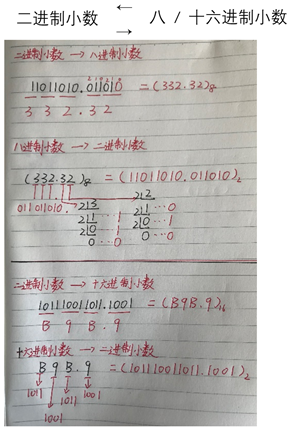 二进制小数 ← → 八 / 十六进制小数
二进制小数 → 八进制小数
11011010.011010 = (332.32)8
3 3 2 . 3 2
八进制小数 → 二进制小数
(332.32)8 = (11011010.011010)2
011011010. 2|3 2|2
2|1 ...1 2|1 ...0
2|0 ...1 2|0 ...1
0 ...0 0 ...0
二进制小数 → 十六进制小数
101110011011.1001 = (B9B.9)16
B 9 B . 9
十六进制小数 → 二进制小数
B 9 B . 9 = (101110011011.1001)2
1011 1011 1001
1001